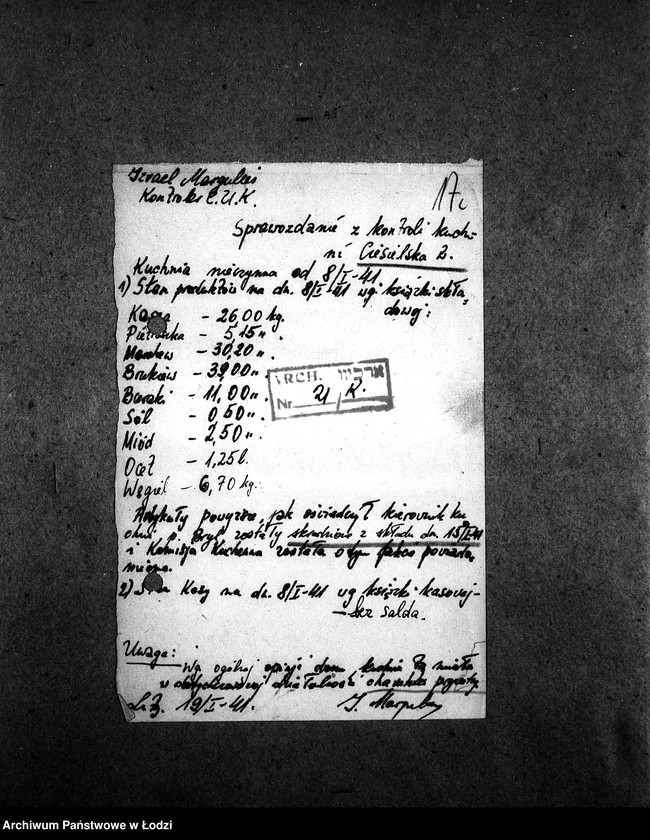 Izrael Margulies
Kontroler C.U.K.
17
Sprawozdanie z kontroli kuch-
ni Cieśielska 2.
Kuchnia nieczynna od 8/I-41
1) Stan produktów na dn. 8/I-41 wg. książki skła-
dowej:
Kasza - 26,00 kg.
Pietruszka - 5,15 ".
Marchew - 30,20 ".
Brukiew - 39,00 ".
Buraki - 11,00 ".
Sól - 0,50 ".
Miód - 2,50 ".
Ocet - 1,25 l.
Węgiel - 6,70 kg.
ARCH. ארכיון
Nr. 21 / R.
Artykuły powyższe, jak oświadczył kierownik ku-
chni p. Bryl zostały skradzione z składu dn. 15/I-41
i Komisja Kuchenna została o tym powiado-
miona.
2) Stan Kasy na dn. 8/I-41 wg książki kasowej -
- bez salda.
Uwaga:
Wg. ogólnej opinji domu kuchnia ta miała
w dotychczasowej działalności charakter prywatny
L-ż. 19/I-41. J. Margulies
Archiwum Państwowe w Łodzi